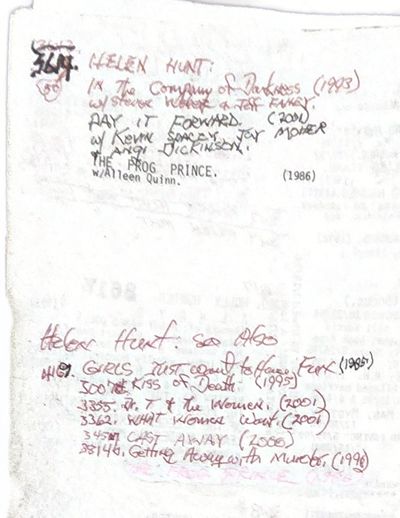 3614. HELEN HUNT:
In the Company of Darkness (1993)
w/Steven Weber & Jeff
PAY IT FORWARD. (2001)
w/ Kevin SPACEY, JAY MOHER
& ANGI DICKINSON.
THE FROG PRINCE. (1986)
w/Aileen Quinn.
Helen Hunt: see Also
GIRLS Just want to Have Fun (1985)
3007 Kiss of Death. (1995)
3355. Dr. T & the Women. (2001)
3362. WHAT Women Want. (2001)
CAST AWAY (2000)
3314b. Getting Away with Murder. (1996)
THE FROG PRINCE (1986